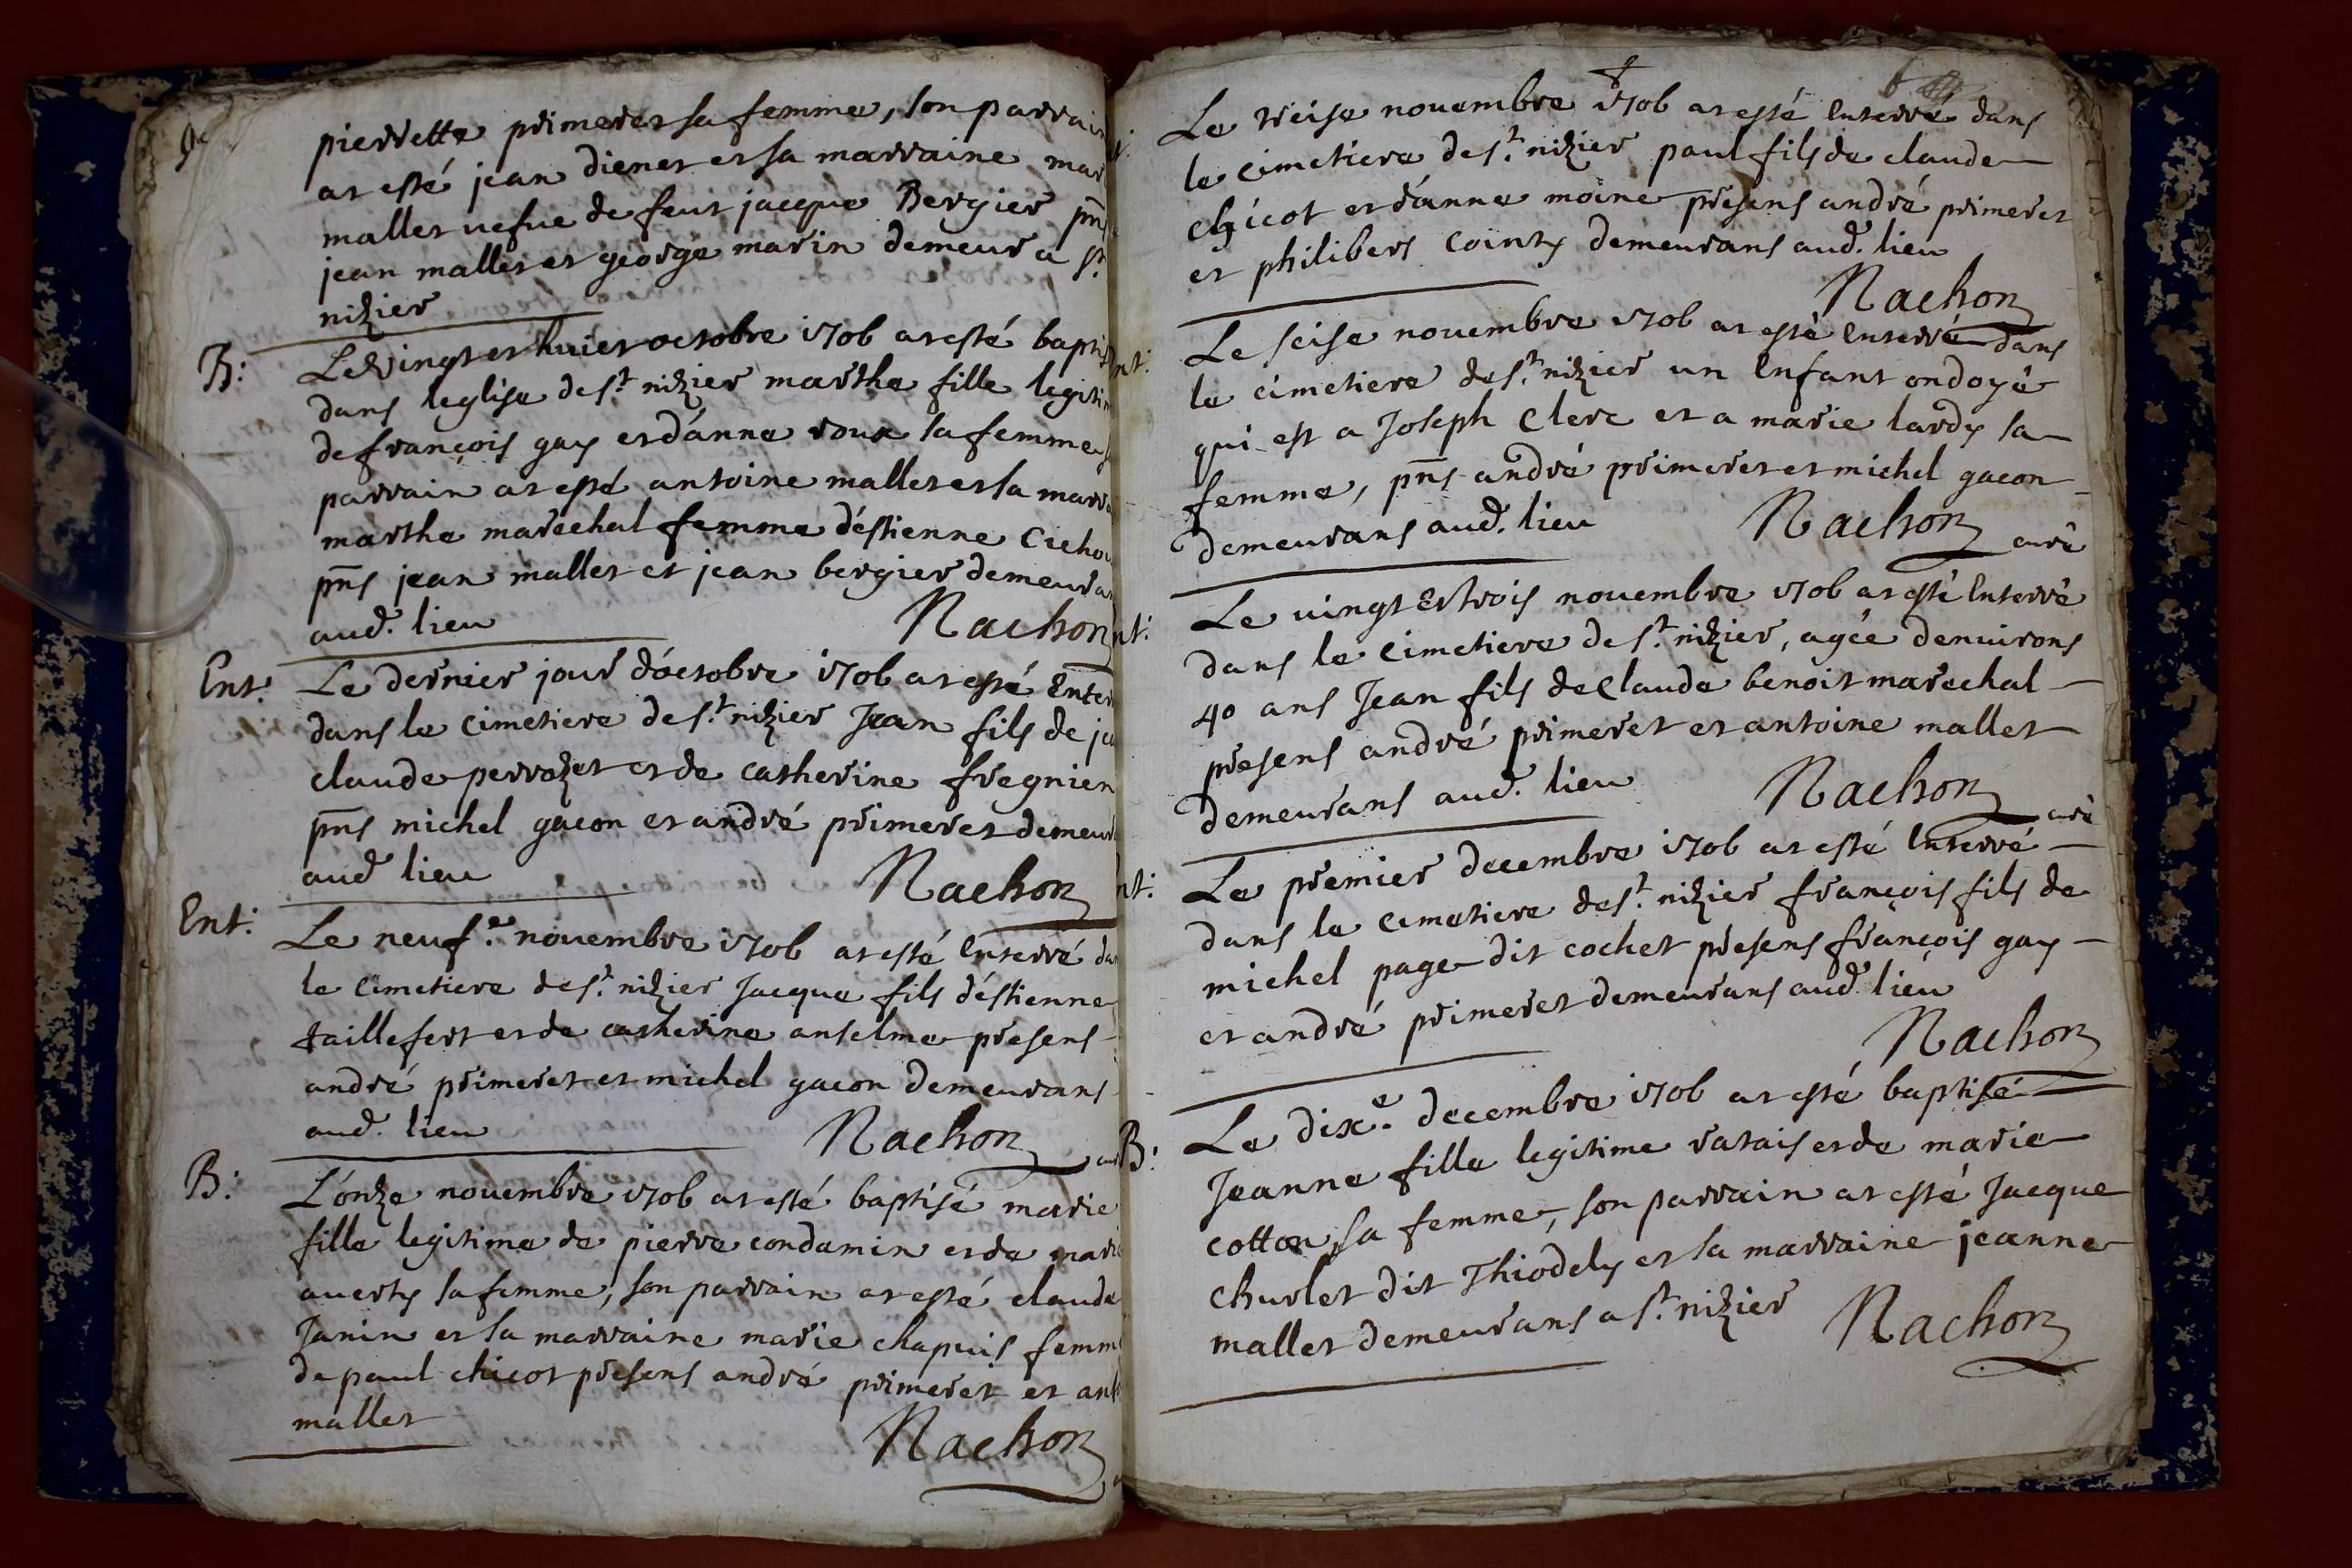 pierrette primeret sa femme, son parrain
at esté jean dienet et sa marraine mar
mallet vefue de feut jacque Bergier pns
jean mallet et george marin demeur a st
nizier
B: Le vingt et huict octobre 1706 at esté baptis
dans leglise de st nizier marthe fille legitim
de françois gay et d'anne roux sa femme, s
parrain at esté antoine mallet et sa marra
marthe marechal femme d'estienne Cichou
pns jean mallet et jean bergier demeura
aud. lieu Nachon
Ent: Le dernier jour d'octobre 1706 at esté Enter
dans le cimetiere de st nizier Jean fils de je
claude perrozet et de catherine fregnien
pns michel gacon et andré primeret demeura
aud lieu Nachon
Ent: Le neuf.e novembre 1706 at esté Enterré dan
le cimetiere de st nizier Jacque fils d'estienne
taillefert et de catherine anselme presens
andré primeret et michel gacon demeurans
aud. lieu Nachon cur
B: L'onze novembre 1706 at esté baptisé marie
fille legitime de pierre condamin et de mari
auerty sa femme, son parrain at esté claude
Janin et sa marraine marie chapuis femm
de paul chicot presens andré primeret et ant
mallet Nachon
Le treise novembre 1706 at esté Enterré dans
le cimetiere de st nizier paul fils de claude
chicot et d'anne moine presens andré primeret
et philibert Cointy demeurans aud. lieu
Nachon
nt: Le seise novembre 1706 at esté Enterré dans
le cimetiere de st nizier un Enfant ondoyé
qui est a Joseph Clerc et a marie lardy sa
femme, pns andré primeret et michel gacon
demeurans aud. lieu Nachon curé
nt: Le vingt Et trois novembre 1706 at esté Enterré
dans le cimetiere de st nizier, agée denuirons
40 ans Jean fils de Claude benoit marechal
presens andré primeret et antoine mallet
demeurans aud. lieu Nachon curé
nt: Le premier decembre 1706 at esté Enterré
dans le cemetiere de st nizier françois fils de
michel page dit cochet presens françois gay
et andré primeret demeurans aud. lieu
Nachon
B: Le dix.e decembre 1706 at esté baptisé
Jeanne fille legitime ratais et de marie
cotton sa femme, son parrain at esté Jacque
churlet dit Thiodely et sa marraine jeanne
mallet demeurans a st nizier Nachon